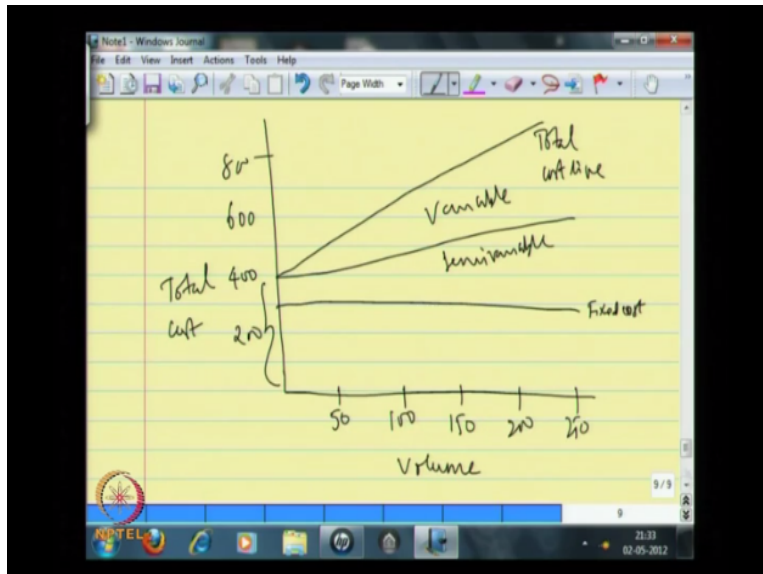 Note1 - Windows Journal
File Edit View Insert Actions Tools Help
Page Width
800
600
Total 400
cost 200
Total
cost line
Variable
Semivariable
Fixed cost
50 100 150 200 250
Volume
9/9
9
NPTEL
21:33
02-05-2012